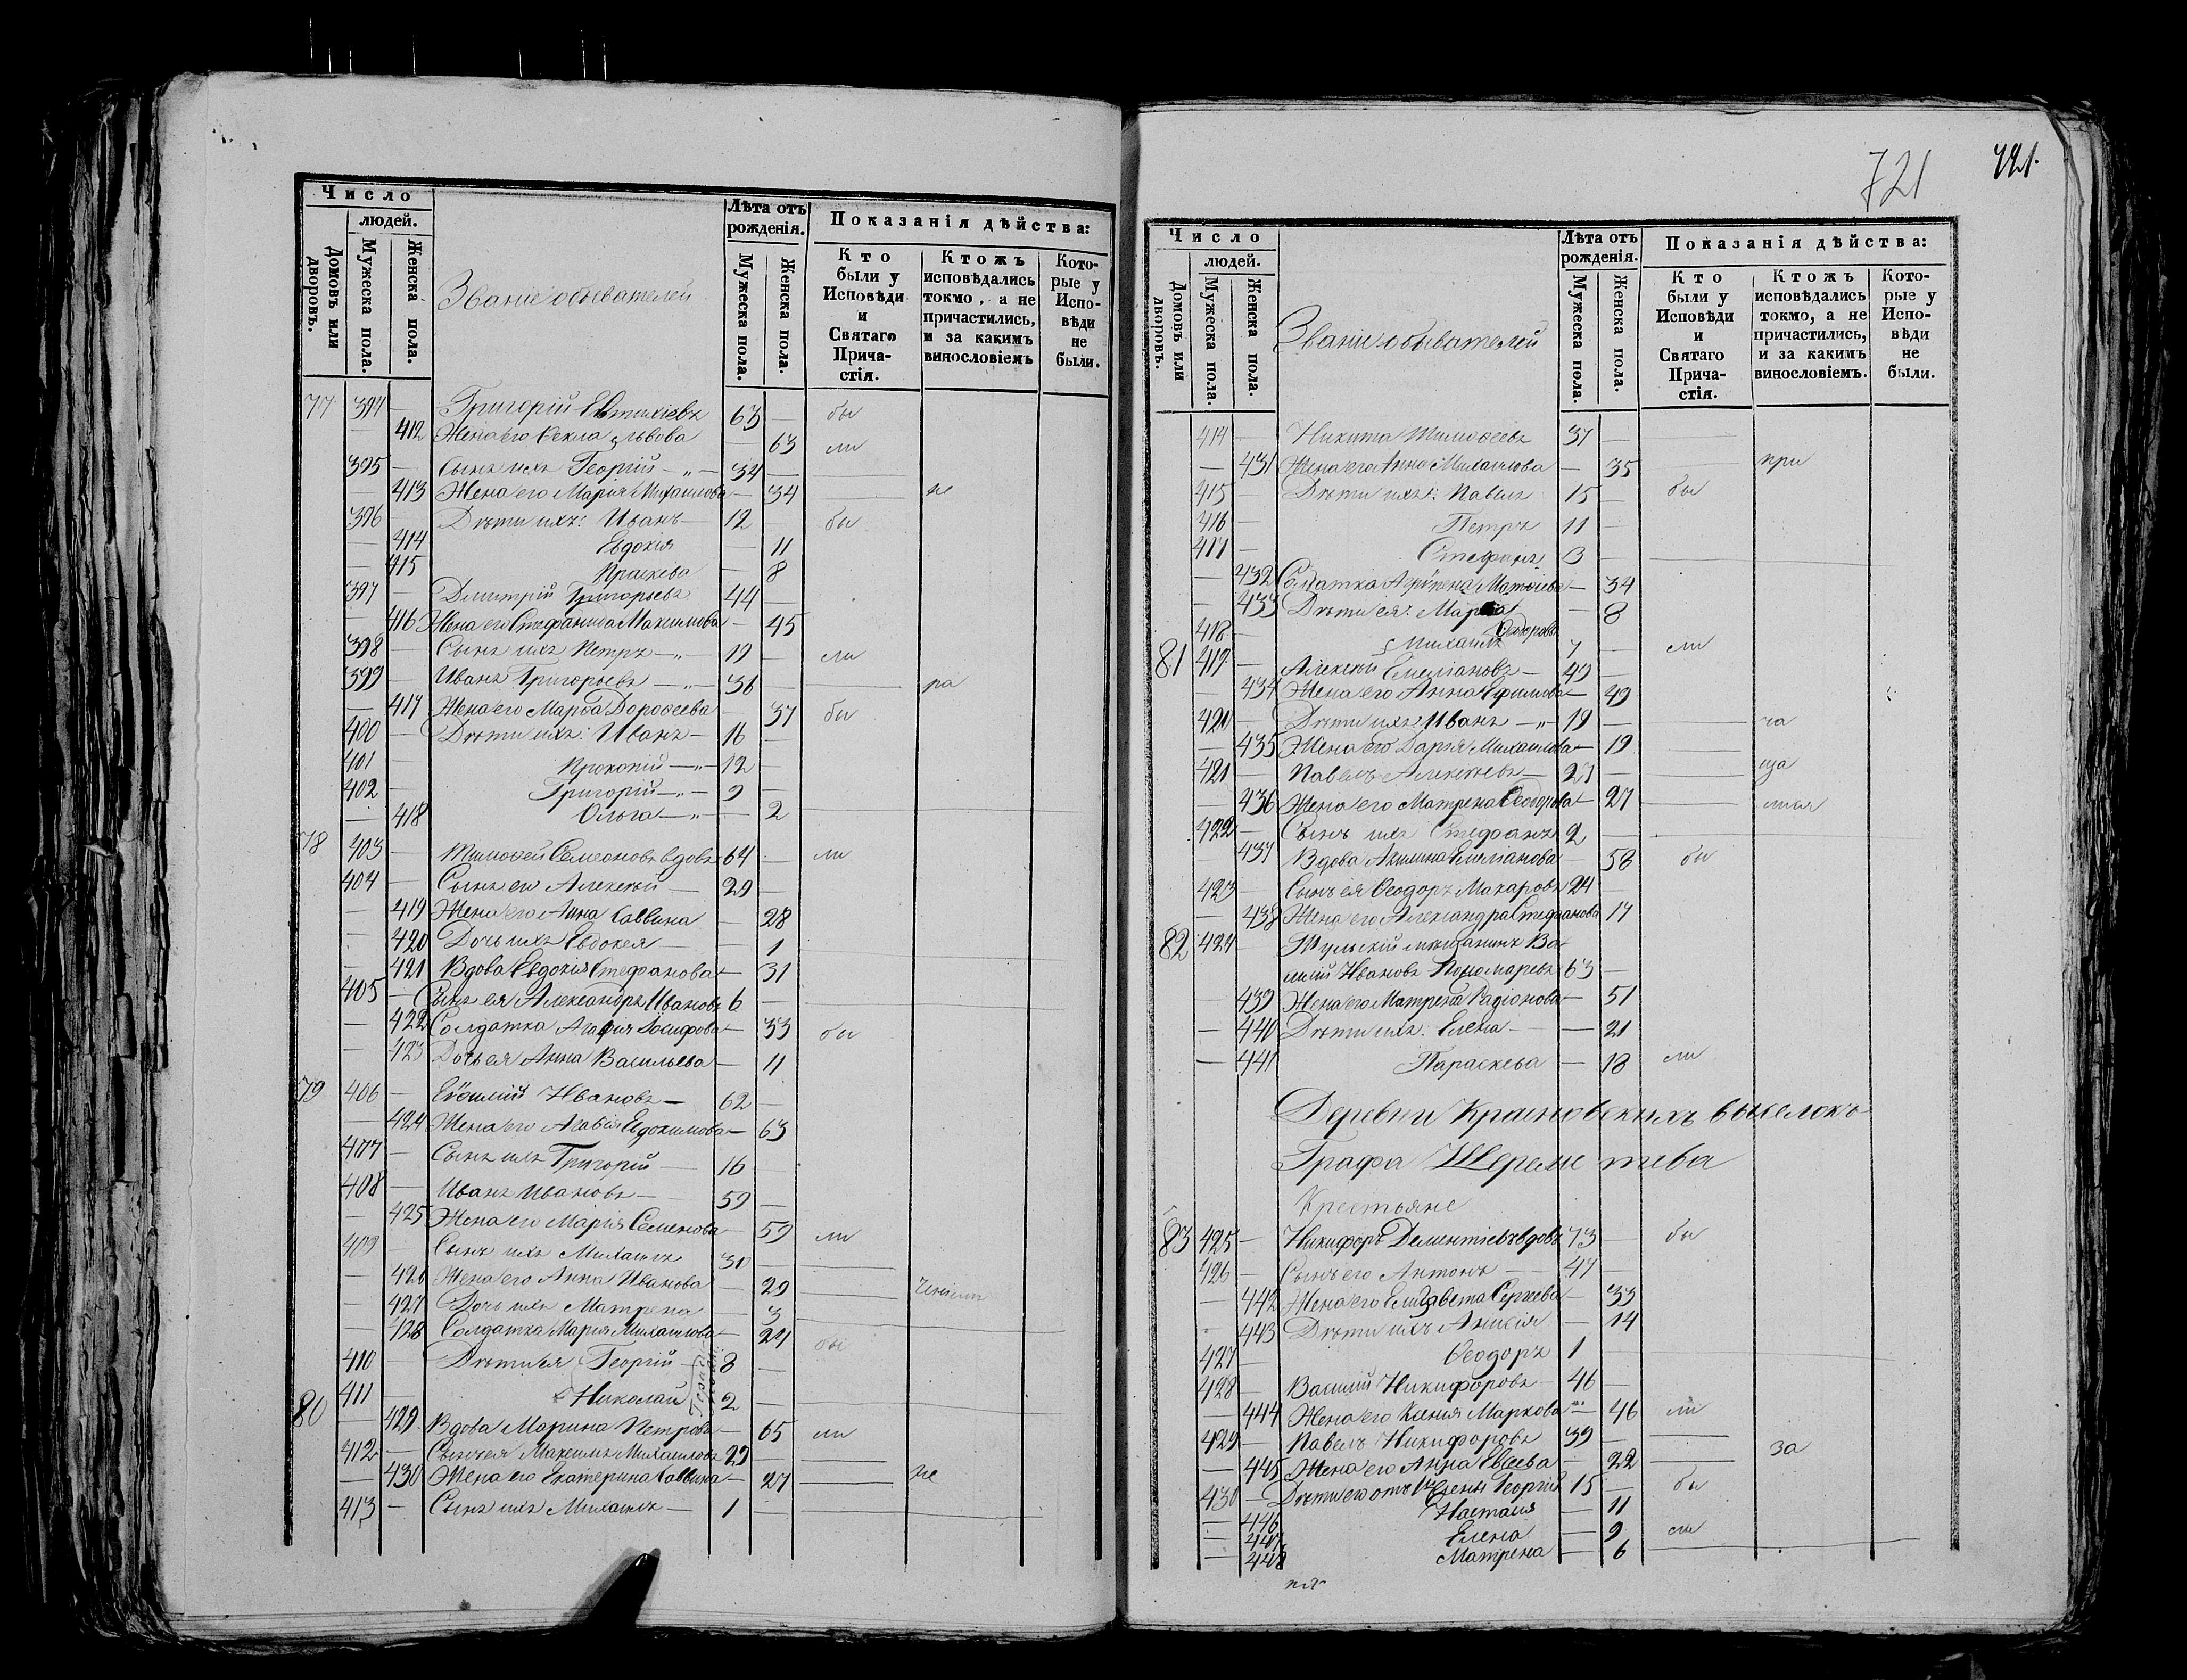 Число
людей.
Домовъ или дворовъ.
Мужеска пола.
Женска пола.
Званіе обывателей
Лѣта отъ рожденія.
Мужеска пола.
Женска пола.
Показанія дѣйства:
Кто были у Исповѣди и Святаго Причастія.
Ктожъ исповѣдались токмо, а не причастились, и за какимъ винословіемъ
Которые у Исповѣди не были.
77 394 — Григорій Евтихіевъ 63 — бы
— 412 Жена его Ѳекла Львова — 63 ли
395 — Сынъ ихъ Георгій — 34 —
— 413 Жена его Марія Михаилова — 34 — не
396 Дѣти ихъ: Иванъ — 12 бы
— 414 Евдокія — 11
— 415 Праскева — 8
397 — Димитрій Григорьевъ 44 —
— 416 Жена его Стефанида Максимова — 45
398 — Сынъ ихъ Петръ — 19 — ли
399 — Иванъ Григорьевъ — 36 — ра
— 417 Жена его Марѳа Дороѳеева — 37 бы
400 — Дѣти ихъ: Иванъ — 16 —
401 — Прокопій — 12 —
402 — Григорій — 9 —
— 418 Ольга — 2
78 403 — Тимоѳей Симеоновъ вдовъ 64 — ли
404 — Сынъ его Алексѣй — 29 —
— 419 Жена его Анна Саввина — 28
— 420 Дочь ихъ Евдокея — 1
— 421 Вдова Евдокія Стефанова — 31
405 — Сынъ ея Александръ Ивановъ 6 —
— 422 Солдатка Агафія Іосифова — 33 бы
— 423 Дочь ея Анна Васильева — 11
79 406 — Евѳимій Ивановъ — 62 —
— 424 Жена его Агафія Евдокимова — 63
407 — Сынъ ихъ Григорій — 16 —
408 — Иванъ Ивановъ — 59 —
— 425 Жена его Марія Семенова — 59 ли
409 — Сынъ ихъ Михаилъ 30 —
— 426 Жена его Анна Иванова — 29
— 427 Дочь ихъ Матрена — 3
— 428 Солдатка Марія Михаилова — 24 бы
410 — Дѣти ея Георгій 8 —
411 — Николай 2 —
80 — 429 Вдова Марина Петрова — 65 ли
412 — Сынъ ея Максимъ Михаиловъ 29 —
— 430 Жена его Екатерина Саввина — 27 — не
413 — Сынъ ихъ Михаилъ — 1 —
721
721.
Число
людей.
Домовъ или дворовъ.
Мужеска пола.
Женска пола.
Званіе обывателей
Лѣта отъ рожденія.
Мужеска пола.
Женска пола.
Показанія дѣйства:
Кто были у Исповѣди и Святаго Причастія.
Ктожъ исповѣдались токмо, а не причастились, и за какимъ винословіемъ.
Которые у Исповѣди не были.
414 — Никита Тимоѳеевъ 37 —
— 431 Жена его Анна Михаилова — 35 — при
415 — Дѣти ихъ: Павелъ 15 — бы
416 — Петръ 11 —
417 — Стефанъ 3 —
— 432 Солдатка Агрипена Матвіева — 34
— 433 Дѣти ея: Марѳа — 8
Ѳедорова
418 — Михаилъ 7 — ли
81 419 — Алексѣй Емеліановъ — 49 —
— 434 Жена его Анна Ефимова — 49
420 — Дѣти ихъ: Иванъ — 19 — ча
— 435 Жена его Дарія Михаилова — 19
421 — Павелъ Алексѣевъ — 27 — ща
— 436 Жена его Матрена Ѳеодорова — 27
422 — Сынъ ихъ Стефанъ 2 —
437 Вдова Акилина Емеліанова — 58 бы
423 — Сынъ ея Ѳеодоръ Макаровъ 24 —
— 438 Жена его Александра Стефанова 17
82 424 — Тульскій мѣщанинъ Ва
силій Ивановъ Пономаревъ 63 —
— 439 Жена его Матрена Радіонова — 51
— 440 Дѣти ихъ: Елена — 21
— 441 Параскева — 18 ли
Деревни Красновскихъ выселокъ
Графа Шереметева
Крестьяне
83 425 — Никифоръ Дементіевъ вдовъ 73 — бы
426 — Сынъ его Антонъ — 47 —
— 442 Жена его Елизавета Сергѣева — 33
— 443 Дѣти ихъ Анисія — 14
427 — Ѳеодоръ 1
428 — Василій Никифоровъ 46 —
— 444 Жена его Ксенія Маркова — 46 ли
429 — Павелъ Никифоровъ 39 —
— 445 Жена его Анна Евсеева — 22 — за
430 — Дѣти его отъ Елены Георгій 15 — бы
— 446 Наталія — 11
— 447 Елена — 9 ли
— 448 Матрена — 6